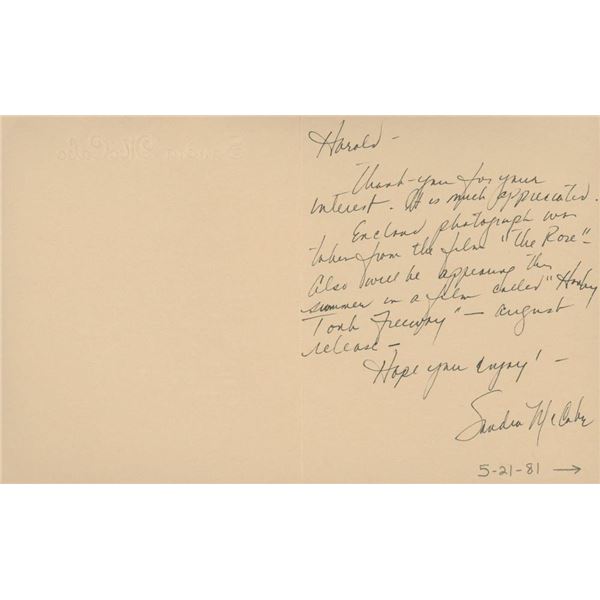 Harold –
Thank-you for your
interest. It is much appreciated.
Enclosed photograph was
taken from the film "The Rose" –
Also will be appearing this
summer in a film called "Honky
Tonk Freeway" – august
release –
Hope you enjoy! –
Sandra McCabe
5-21-81 →